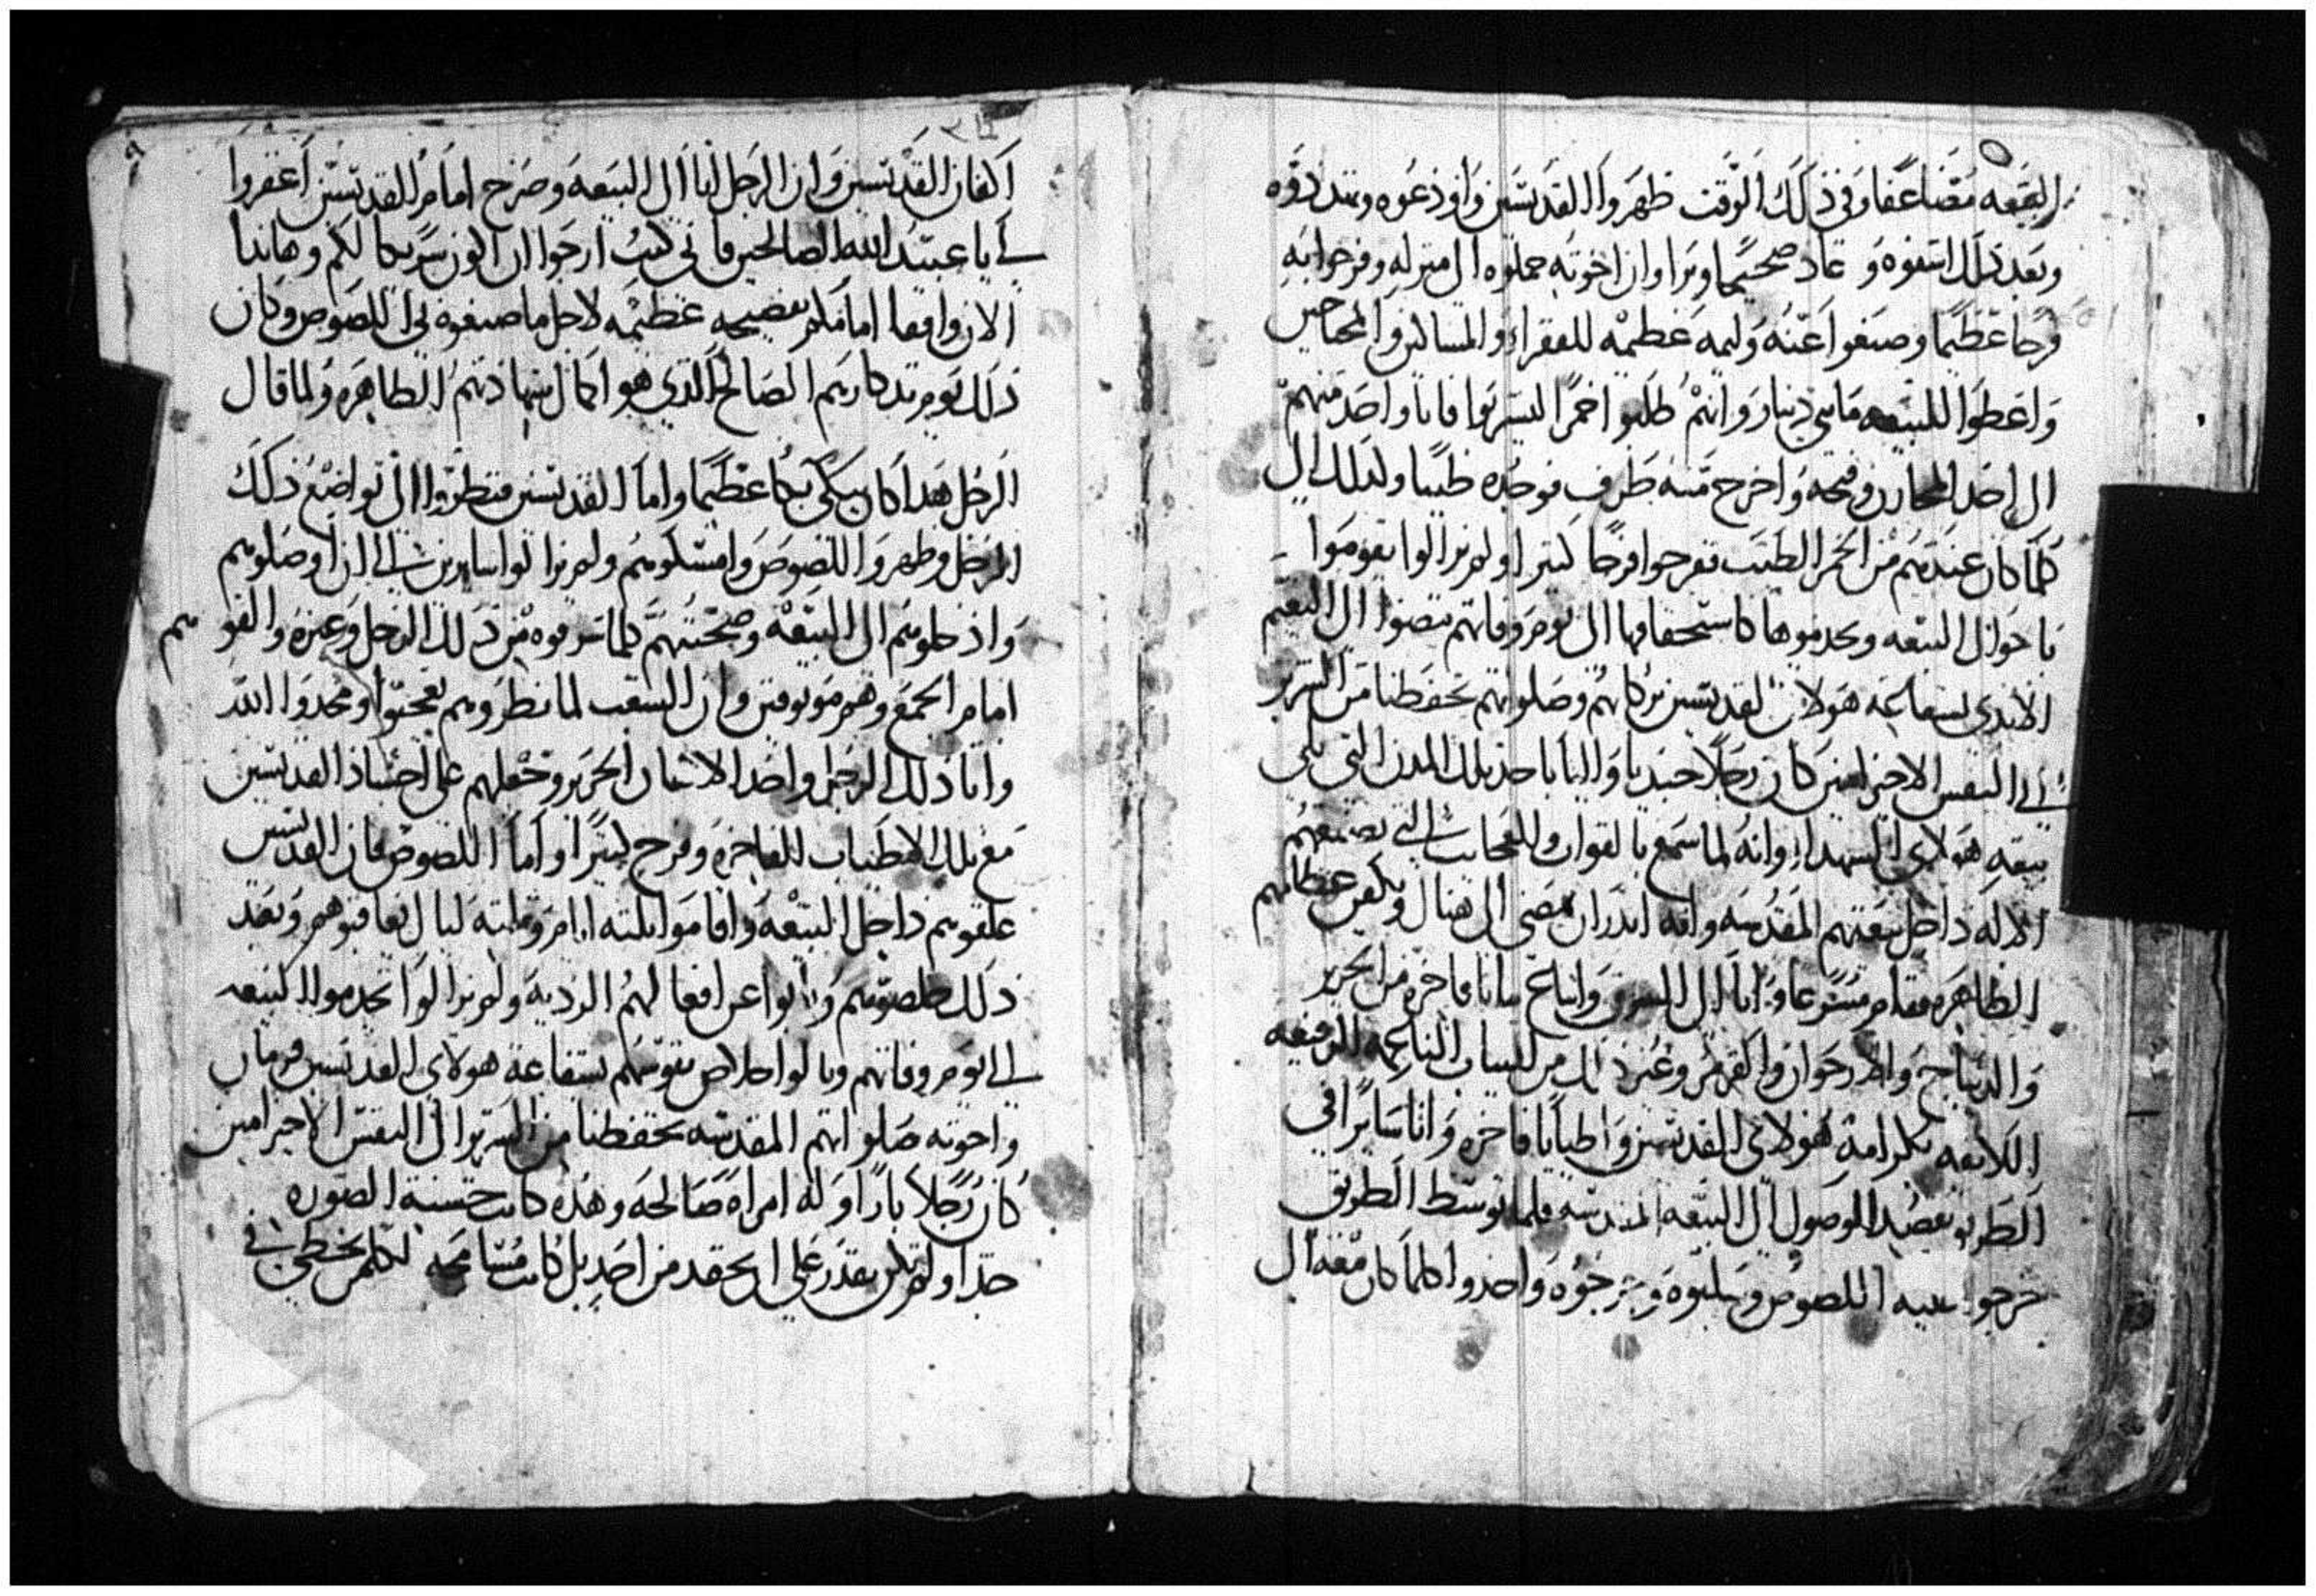 البيعه مضاعفا وفي ذلك الوقت ظهروا القديسين واودعوه وتنددوه
وبعد ذلك اشفوه وعاد صحيحا وبرا وان اخوته حملوه الى منزله وفرحوا به
فرحا عظيما وصنعوا عنه وليمه عظيمه للفقراء والمساكين والمحتاجين
واعطوا للبيعه مايتي دينار وانهم طلبوا خمرا ليشربوا فاتا واحد منهم
الى احد المخازن وفتحه واخرج منه ظرف فوجده طيبا ولذلك الى
كلما كان عندهم من الخمر الطيب ففرحوا فرحا كثيرا ولم يزالوا يقوموا
باحوال البيعه ويخدموها كاستحقاقها الى يوم وفاتهم فمضوا الى النعيم
الابدي بشفاعة هولاى القديسين بركاتهم وصلواتهم تحفظنا من الشرير
الى النفس الاخير امين كان رجلا جنديا واليا باحد تلك المدن التي تلي
بيعة هولاى الشهدا وانه لما سمع بالقوات والعجايب التي يصنعهم
الاله داخل بيعتهم المقدسه وانه اندر ان يمضي الى هناك ويكفن عظامهم
الطاهره فقام مسرعا واتا الى السوق وابتاع ثيابا فاخره من الحرير
والديباج والارجوان والقرمز وغير ذلك من الثياب الناعمه الرفيعه
اللايقه بكرامة هولاى القديسين واطيابا فاخره واتا سايرا في
الطريق بقصد الوصول الى البيعه المقدسه فلما توسط الطريق
خرجوا عليه اللصوص وسلبوه وجرحوه واخدوا كلما كان معه الى
اكفان القديسين وان الرجل اتا الى البيعه وصرخ امام القديسين اغفروا
لي يا عبيد الله الصالحين فاني كنت ارجوا ان اكون شريكا لكم وهاندا
الان واقفا امامكم بفضيحه عظيمه لاجل ما صنعوه بي اللصوص وكان
ذلك يوم تدكارهم الصالح الذي هو اكمال شهادتهم الطاهره ولما قال
الرجل هدا كان يبكي بكا عظيما واما القديسين فنظروا الى تواضع ذلك
الرجل وظهروا اللصوص وامسكوهم ولم يزالوا سايرين الى ان اوصلوهم
وادخلوهم الى البيعه وصحبتهم كلما سرقوه من ذلك الرجل وغيره والقوهم
امام الجمع وهم موتوقين وان الشعب لما نظروهم تعجبوا ومجدوا الله
واتا ذلك الرجل واخد الاثياب الحرير وجعلهم على اجساد القديسين
مع تلك الاطياب الفاخره وفرح كثيرا واما اللصوص فان القديسين
علقوهم داخل البيعه واقاموا تلته ايام وتلته ليال يعاقبوهم وبعد
ذلك خلصوهم وتابوا عن افعالهم الرديه ولم يزالوا يخدموا البيعه
الى يوم وفاتهم ونالوا خلاص نفوسهم بشفاعة هولاى القديسين قزمان
واخوته صلواتهم المقدسه تحفظنا من الشرير الى النفس الاخير امين
كان رجلا بارا وله امراه صالحه وهذه كانت حسنة الصوره
جدا ولم تكن تقدر على ان تحقد من احد بل كانت مسامحه لكلمن يخطي في